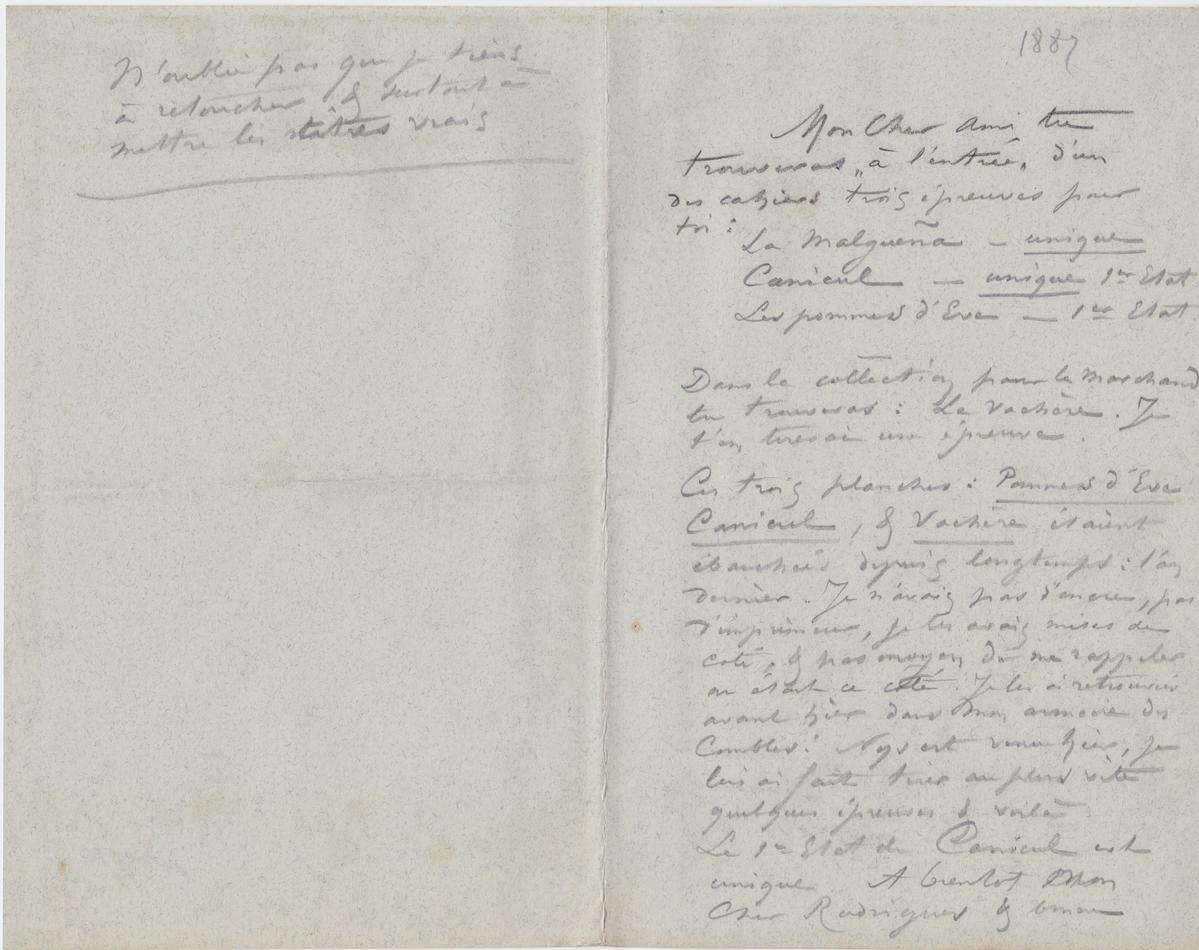 N'oublie pas que je tiens
à retoucher & surtout à
mettre les titres vrais
1887
Mon Cher ami tu
trouveras „à l'entrée„ d'un
des cahiers trois épreuves pour
toi :
La Malgueña – unique
Canicul — unique 1er Etat
Les pommes d'Eve — 1er Etat
Dans la collection pour le Marchand
tu trouveras : La Vachère. Je
t'en tirerai une épreuve.
Ces trois planches : Pommes d'Eve
Canicul, & Vachère étaient
ébauchées depuis longtemps : l'an
dernier. Je n'avais pas d'encre, pas
d'imprimeur, je les avais mises de
coté, & pas moyen de me rappeler
ou était ce coté. Je les ai retrouvées
avant hier dans mon armoire des
Combles! Nys est venu hier, je
lui ai fait tirer au plus vite
quelques épreuves & voilà
Le 1er Etat de Canicul est
unique A bientot Mon
Cher Rodrigues &